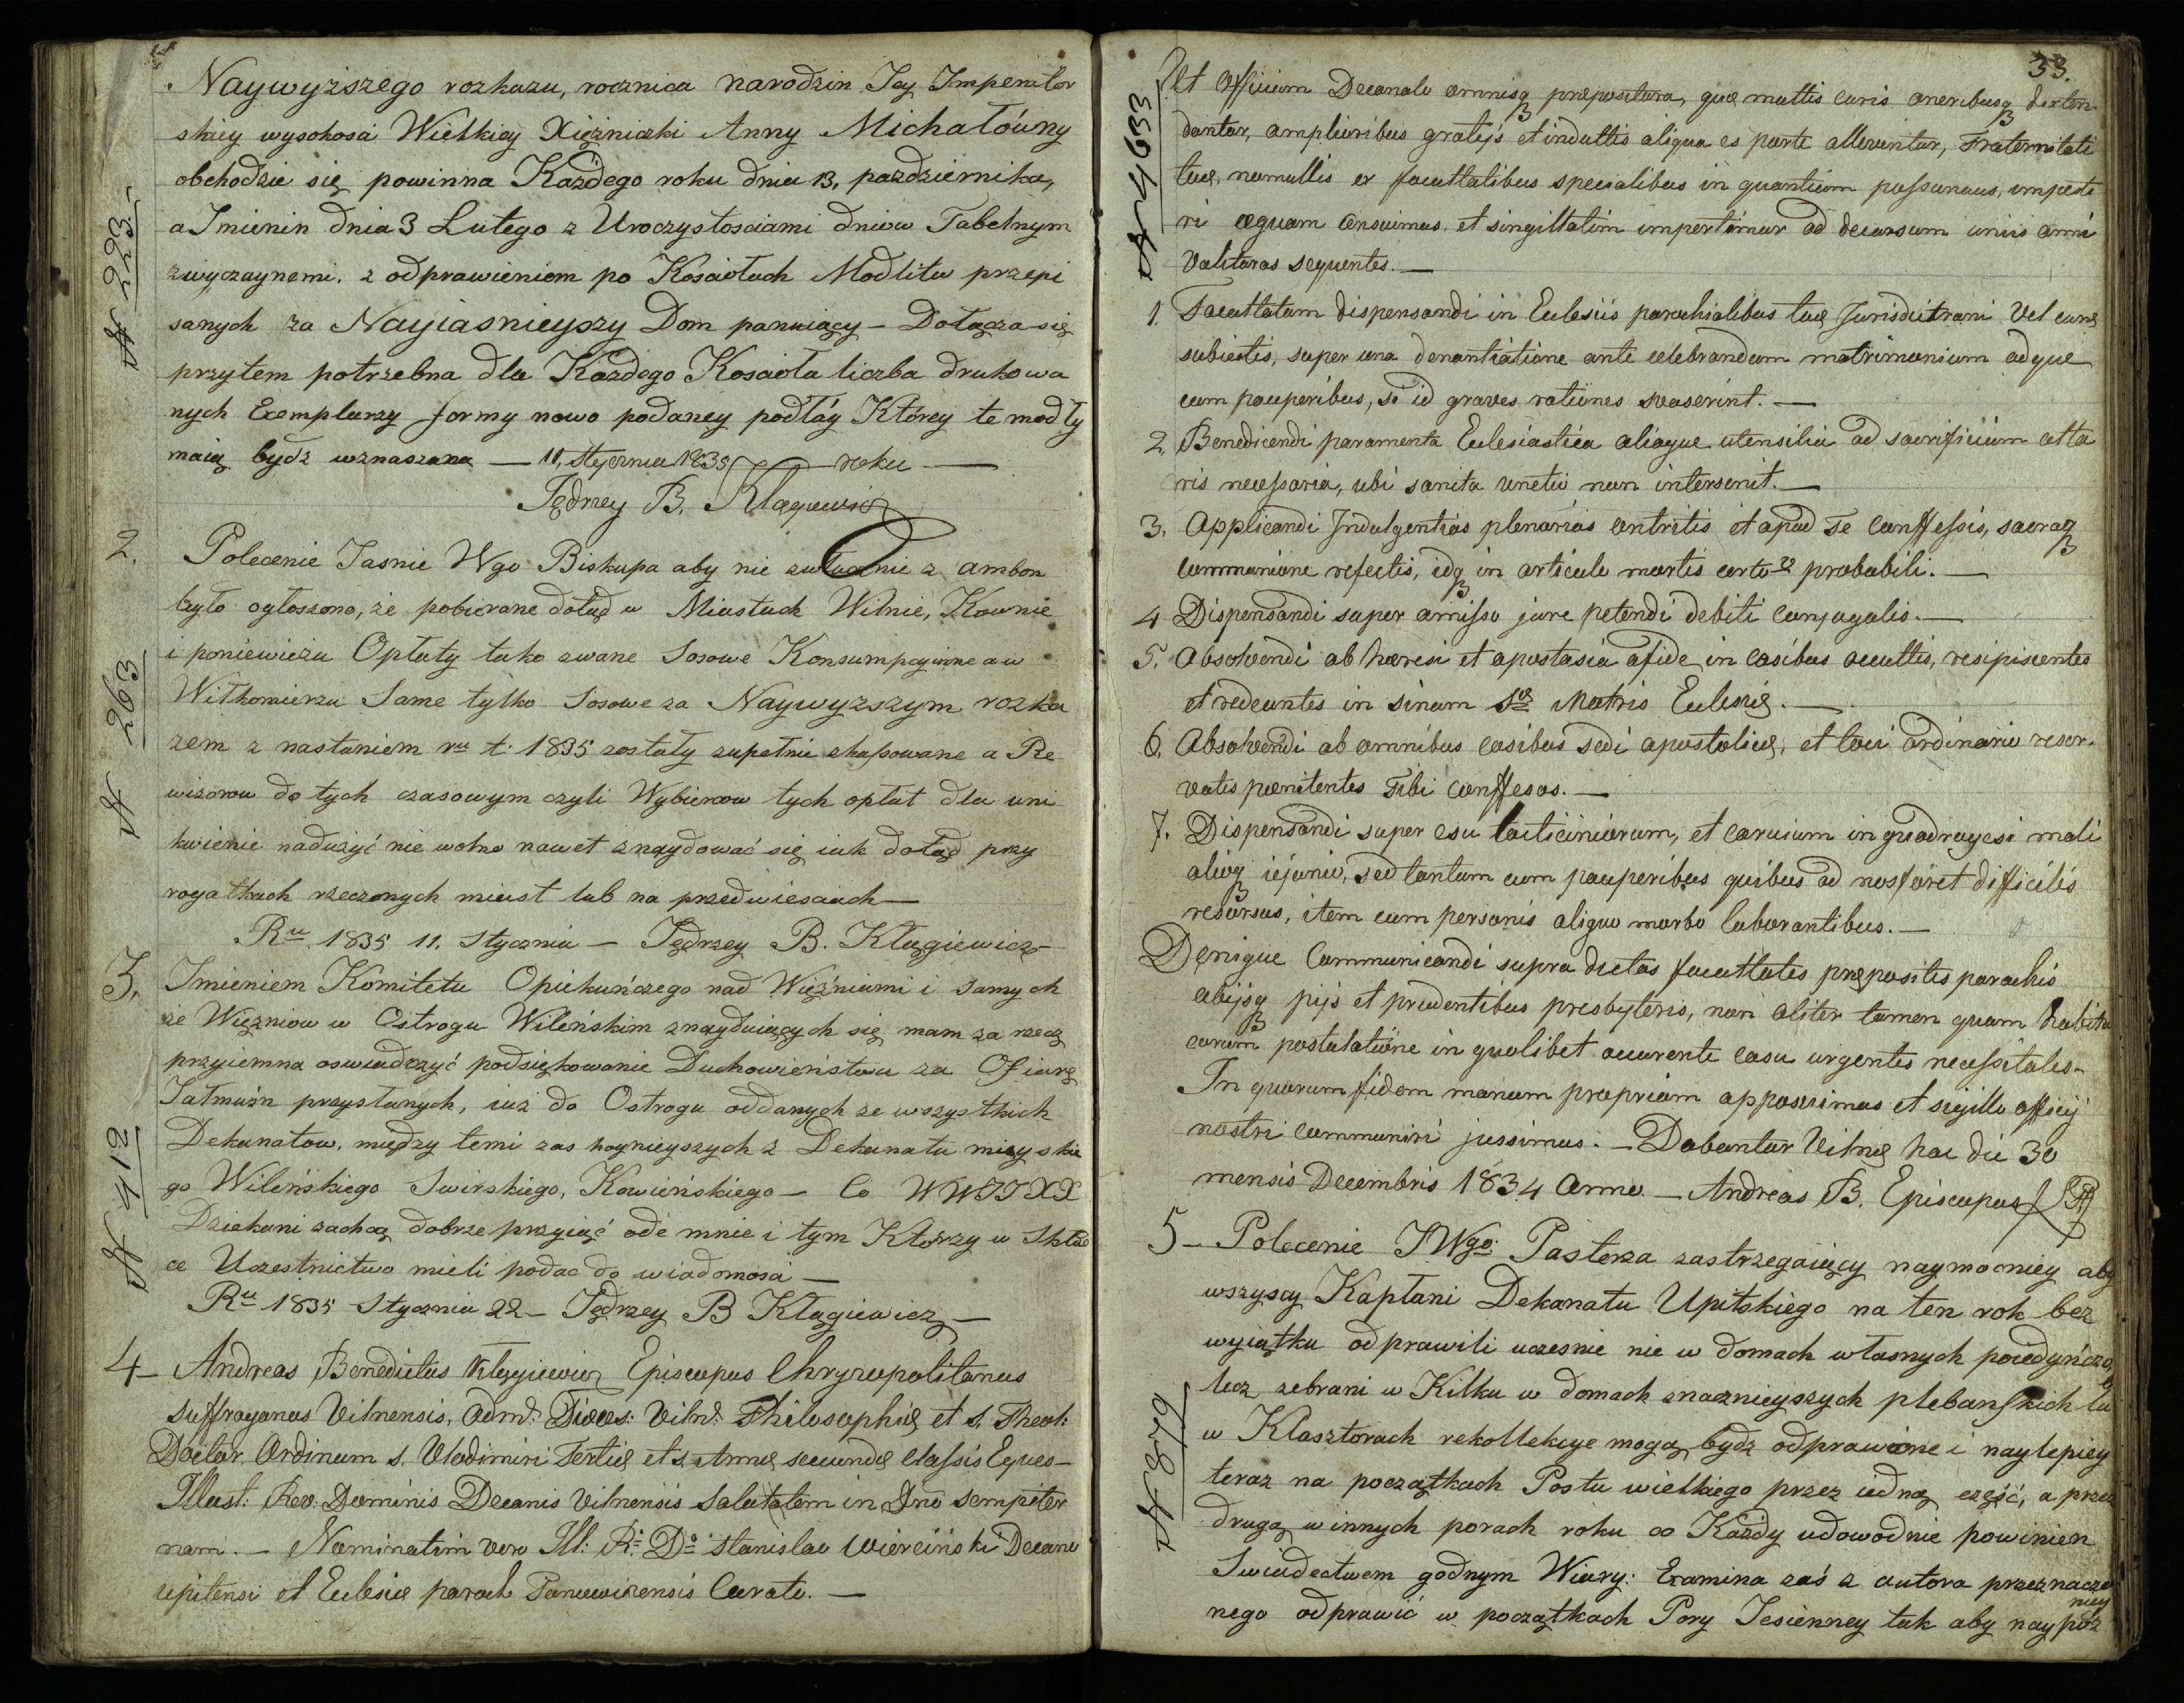 Naywyższego rozkazu, rocznica narodzin Jey Imperator
skiey wysokosci Wielkiey Xiężniczki Anny Michałówny
obchodzic się powinna Każdego roku dnia 13, pazdziernika,
a Imienin dnia 3 Lutego z Uroczystosciami dniow Tabelnym
zwyczaynemi, z odprawieniem po Kosciołach Modlitw przepi
sanych za Nayiasnieyszy Dom panuiący – Dołącza się
N 223 –
przytem potrzebna dla Każdego Koscioła liczba drukowa
nych Exemplarzy formy nowo podaney podłóg Którey te modły
maią bydz wznaszane — 11, Stycznia 1835 roku —
Jędrzey B. Kłągiewicz
2.
Polecenie Jasnie Wgo Biskupa aby nie zwłocznie z ambon
było ogłoszono, że pobierane dotąd w Miastach Wilnie, Kownie
i poniewieżu Opłaty tako zwane Sosowe Konsumpcyinne a w
N 263
Wiłkomierzu Same tylko Sosowe za Naywyższym rozka
zem z nastaniem ru t. 1835 zostały zupełnie skassowane a Re
wizorow do tych czasowym czyli Wybiercow tych opłat dla uni
knienie nadużyć nie wolno nawet znaydować się iak dotąd przy
rogatkach rzeczonych miast lub na przedmiesciach —
Ru 1835 11. Stycznia – Jędrzey B. Kłągiewicz –
3.
Imieniem Komitetu Opiekuńczego nad Więźniami i samych
że Więzniow w Ostrogu Wileńskim znayduiących się mam za rzecz
przyiemna oswiadczyć podziękowanie Duchowieństwu za Ofiarę
Jałmużn przysłanych, iuż do Ostrogu oddanych ze wszystkich
N 412
Dekanatow, między temi zas hoynieyszych z Dekanatu mieyskie
go Wileńskiego Swirskiego, Kowieńskiego – Co WWJJXX
Dziekani zachcą dobrze przyiąć ode mnie i tym Którzy w Skład
ce Uczestnictwo mieli podac do wiadomosci —
Ru 1835 Stycznia 22 – Jędrzey B Kłągiewicz –
4 – Andreas Benedictus Kłągiewicz Episcopus Chryzopolitanus
Suffraganus Vilnensis, Admr: Dioces: Viln: Philosophiæ et s. Theol:
Doctor, Ordinum s. Vladimiri Tertiæ et s. Annæ secundæ classis Eques –
Illust: Rev: Dominis Decanis Vilnensis Salutatem in Dno sempiter
nam. – Nominatim vero Ill: R: Do Stanislao Wierciński Decano
upitensi et Eclesiæ paroch Poniewiezensis Curato. —
33.
Ut Officium Decanale omnisq præpositura, quæ multis curis oneribusq disten
dantur, amplioribus gratijs et indultis aliqua es parte alleventur, Fraternitati
N 4633
tuæ, nonnullis ex facultatibus specialibus in quantum possumus, imperti
ri æquam censuimus, et singillatim impertimur ad decursum unius anni
Valituras sequentes. —
1. Facultatem dispensandi in Eclesiis parochialibus tuæ Jurisdictioni Vel curæ
subiectis, super una denuntiatione ante celebrandum matrimonium adque
cum pauperibus, si id graves rationes svaserint. —
2. Benedicendi paramenta Eclesiastica aliaque utensilia ad sacrificium alta
ris necessaria, ubi sancta unctio non intervenit. —
3. Applicandi Indulgentias plenarias contritis et apud Te confessis, sacraq
communione refectis, idq in articulo mortis certo vo probabili. —
4 Dispensandi super amisso jure petendi debiti conjugalis. —
5. Absolvendi ab hæresi et apostasia a fide in casibus occultis, resipiscentes
et redeuntes in sinum Sæ Matris Eclesiæ. —
6. Absolvendi ab omnibus casibus sedi apostolicæ, et loci ordinario reser.
vatis pœnitentes Tibi confessos. —
7. Dispensandi super esu lacticiniorum, et carnium in quadragesi mali
alioq iejunio, sed tantum cum pauperibus quibus ad nos foret difficilis
resursus, item cum personis aliquo morbo laborantibus. —
Deniqve Communicandi supra dictas facultates præpositis parochis
alijsq pijs et prudentibus presbyteris, non aliter tamen quam habita
eorum postulatione in quolibet occurente casu urgentis necessitates –
In quorum fidem manum propriam apposuimus et sigillo officij
nostri communiri jussimus. – Dabantur Vilnæ hac die 30
mensis Decembris 1834 Anno. – Andreas B. Episcopus
5 – Polecenie JWgo: Pasterza zastrzegaiący naymocniey aby
wszyscy Kapłani Dekanatu Upitskiego na ten rok bez
wyiątku odprawili uczesnie nie w domach własnych poiedyńczo,
lecz zebrani w Kilku w domach znacznieyszych plebanskich lu
N 879
w Klasztorach rekollekcye mogą bydz odprawione i naylepiey
teraz na początkach Postu wielkiego przez iedną część, a przez
drugą w innych porach roku co Każdy udowodnie powinien
Swiadectwem godnym Wiary: Examina zaś z autora przeznaczo
nego odprawić w początkach Pory Jesienney tak aby naypoz
niey